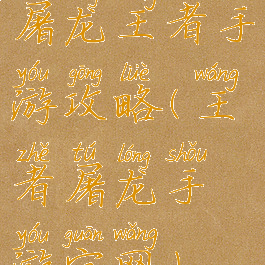 屠龙王者手
yóu gōng lüè wáng
游攻略(王
zhě tú lóng shǒu
者屠龙手
yóu guān wǎng
游官网)